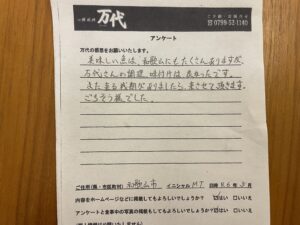 万代
ご予約・お問合せ
☎0799-52-1140
アンケート
万代の感想をお願いいたします。
美味しい魚は、和歌山にもたくさんありますが
万代さんの調理、味付けは良かったです。
また来る機会がありましたら、来させて頂きます。
ごちそう様でした。
ご住所(県・市区町村) 和歌山市 イニシャル MT R6年3月
内容をHPなどに掲載してもよろしいでしょうか? はい □いいえ
アンケートと食事中の写真の掲載もしてもよろしいでしょうか? はい □いいえ